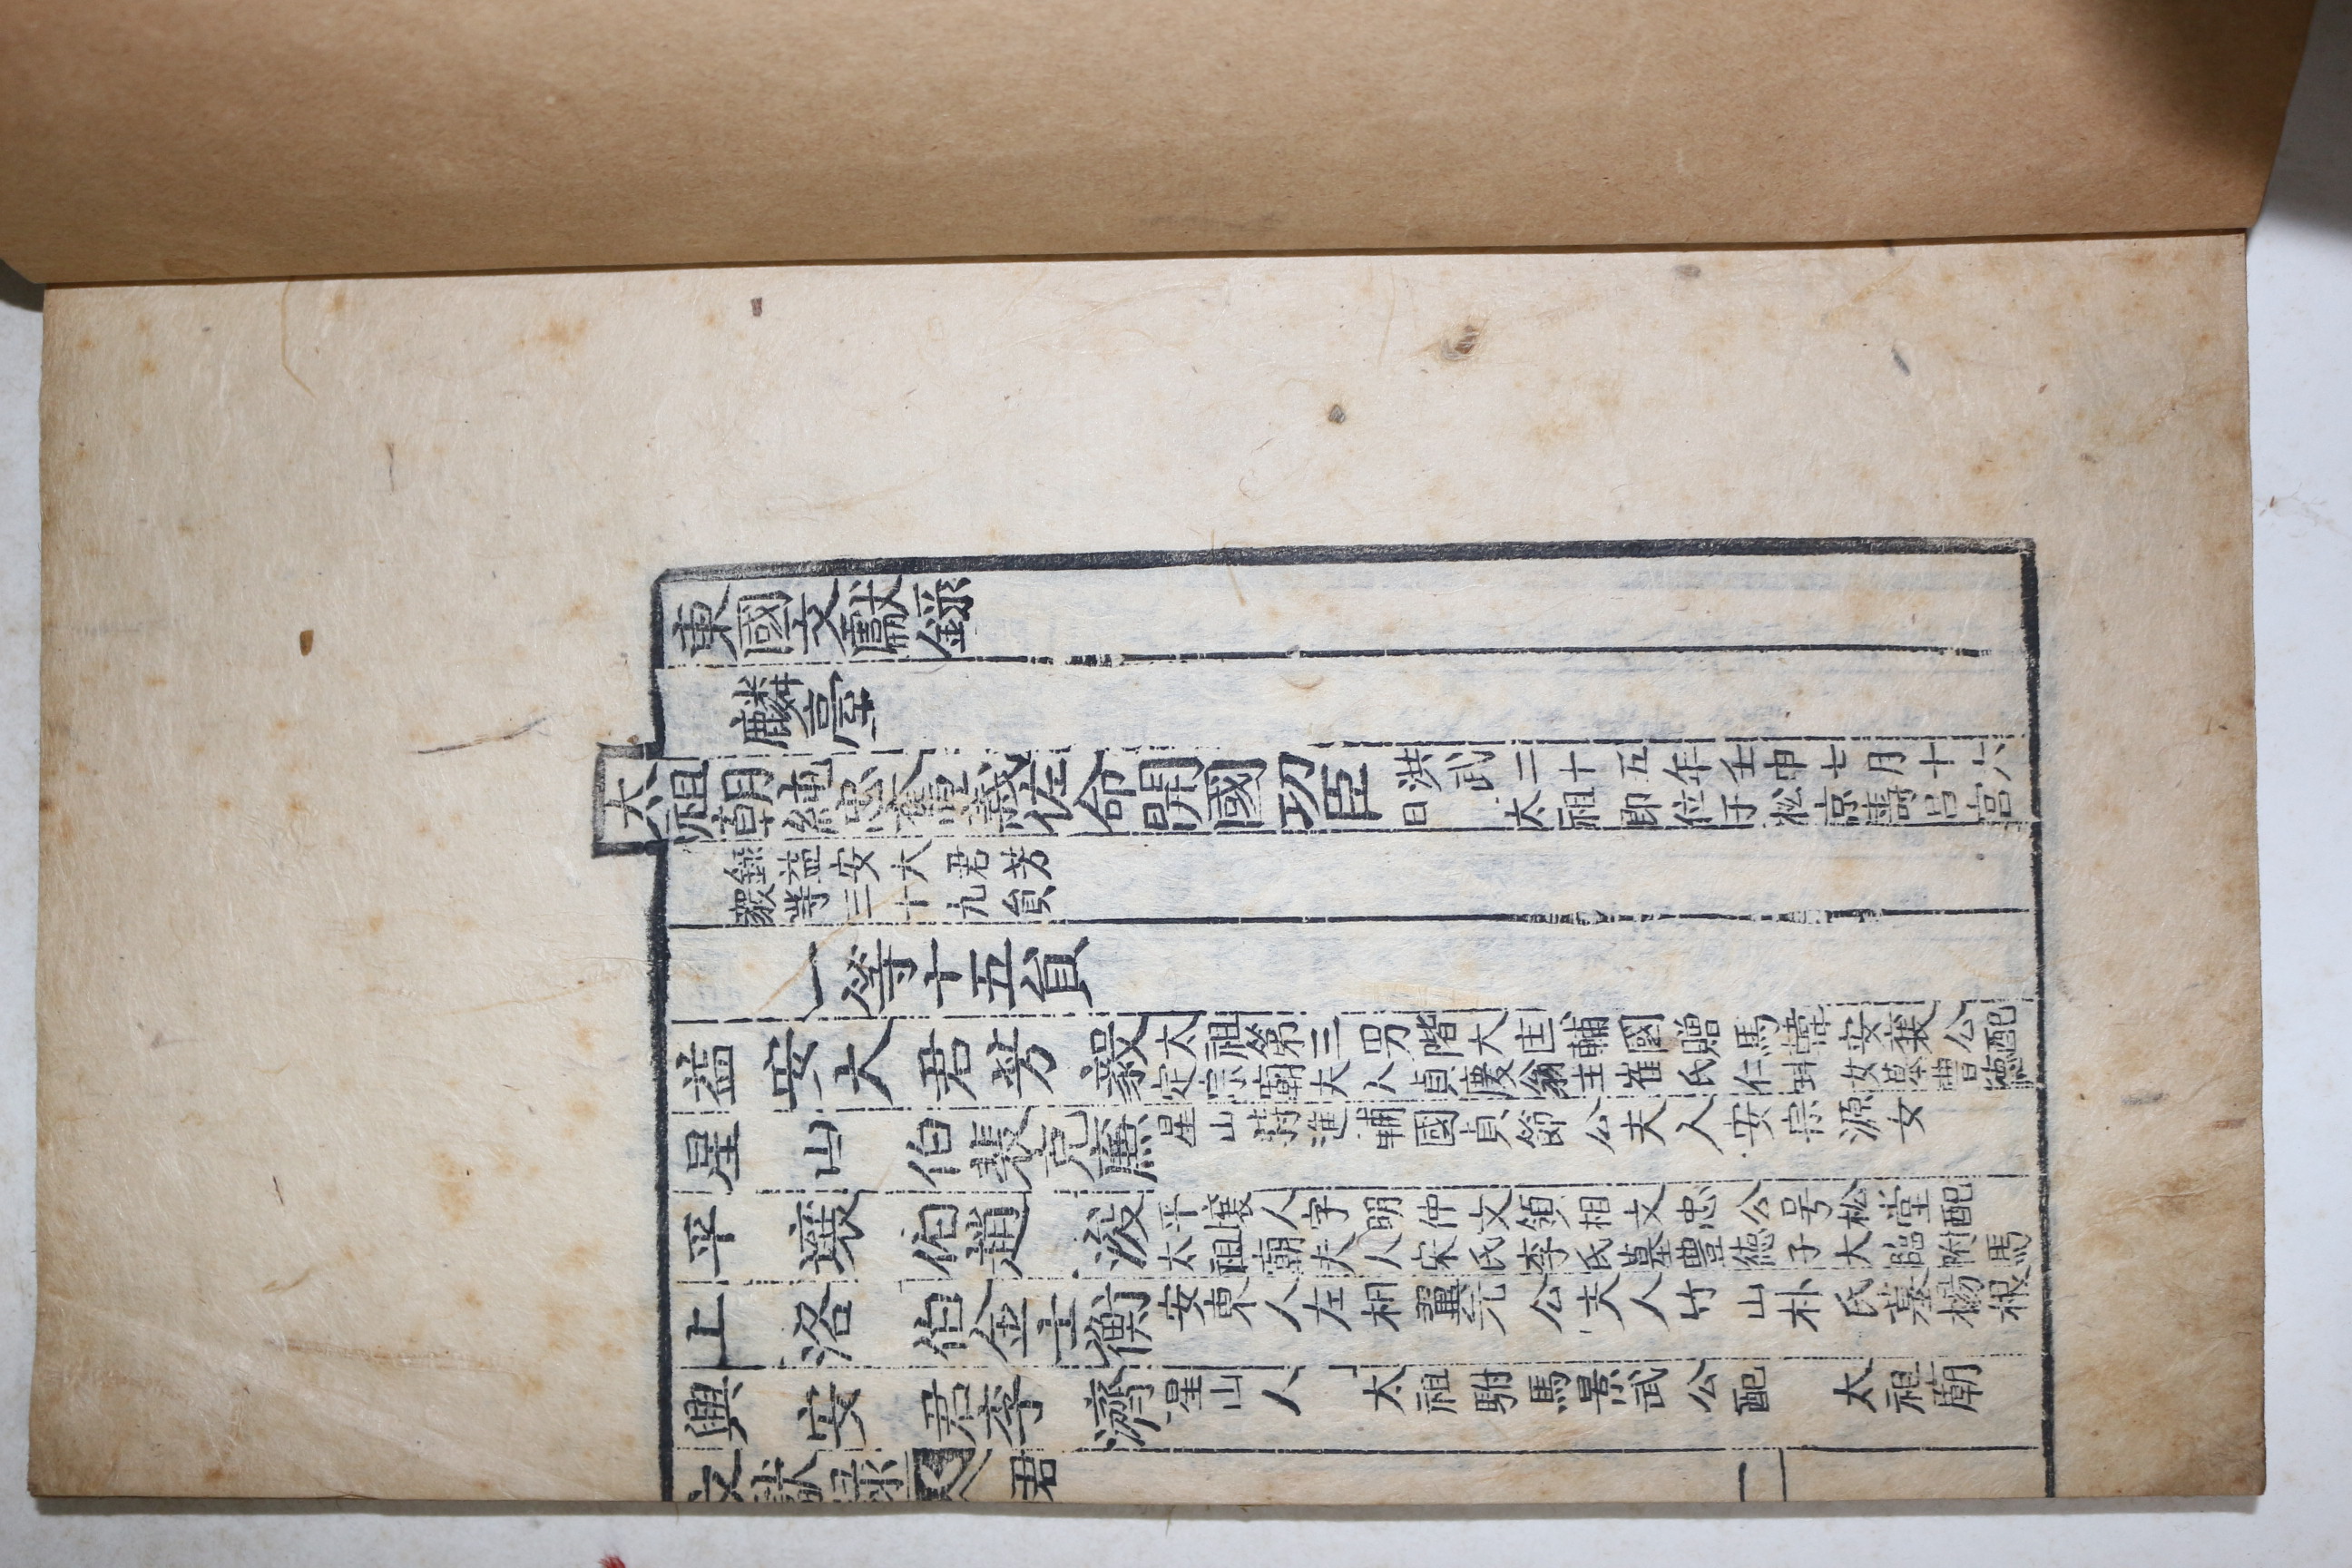 東國文獻錄
麟臺
太祖朝純忠奮義佐命開國功臣
洪武二十五年壬申七月十六
日 太祖即位于松京壽昌宮
錄益安大君芳
毅等三十九員
一等十五員
益安大君芳毅
太祖第三男階大匡輔國贈馬韓安襄公配
定宗廟夫人貞慶翁主崔氏仁㺶女墓豊德
星山伯裴克廉
星山特進輔國貞節公夫人安宗源女
平壤伯趙浚
平壤人字明仲文領相文忠公号松堂配
太祖廟夫人宋氏李氏墓豊德子大臨附馬
上洛伯金士衡
安東人左相翼元公夫人竹山朴氏墓楊根
興安君李濟
星山人 太祖駙馬景武公配 太祖廟
文獻錄 君 一